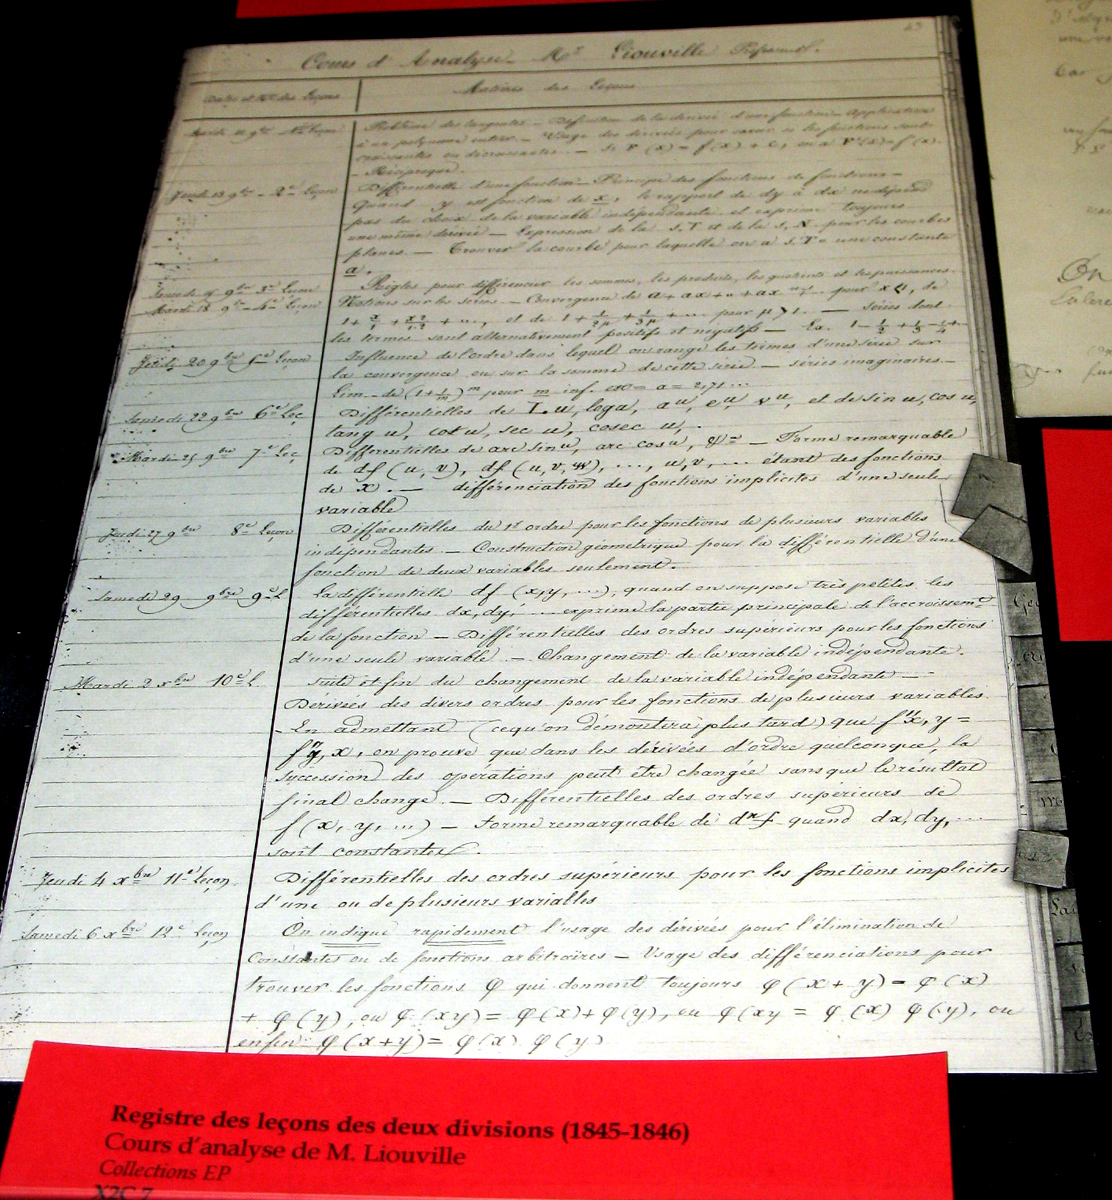 Cours d'Analyse Mr Liouville Professeur.
Dates et Nos des Leçons
Matières des Leçons
Mardi 11 9bre 1re Leçon
Problème des tangentes. — Définition de la dérivée d'une fonction — Application
à un polynome entier. — Usage des dérivées pour savoir si les fonctions sont
croissantes ou décroissantes. — Si F(x) = f(x) + c, on a F'(x) = f'(x).
— Réciproque.
Jeudi 13 9bre — 2e Leçon
Différentielle d'une fonction — Principe des fonctions de fonctions —
Quand y est fonction de x, le rapport de dy à dx ne dépend
pas du choix de la variable indépendante et exprime toujours
une même dérivée — Expression de la S.T et de la S.N. pour les courbes
planes. — Trouver la courbe pour laquelle on a S.T = une constante
a.
Samedi 15 9bre 3e Leçon
Règles pour différencier les sommes, les produits, les quotients et les puissances.
Mardi 18 9bre 4e Leçon
Notions sur les séries — Convergence de a + ax + .. + ax^m .. pour x<1, de
1 + x/1 + x²/1.2 + .., et de 1 + 1/2^μ + 1/3^μ + ... pour μ > 1. — Séries dont
les termes sont alternativement positifs et négatifs — Ex. 1 - 1/2 + 1/3 - 1/4 + ..
Jeudi 20 9bre 5e Leçon
Influence de l'ordre dans lequel on range les termes d'une série sur
la convergence ou sur la somme de cette série — séries imaginaires. —
Lim. de (1 + 1/m)^m pour m inf.
Samedi 22 9bre 6e Leç
Différentielles de L.u, log u, a^u, e^u, v^u, et de sin u, cos u,
tang u, cot u, sec u, cosec u,
Mardi 25 9bre 7e Leç
Différentielles de arc sin u, arc cos u, &a — Forme remarquable
de df(u, v), df(u, v, w), ..., u, v, ... étant des fonctions
de x. — différenciation des fonctions implicites d'une seule
variable
Jeudi 27 9bre 8e Leçon
Différentielles du 1er ordre pour les fonctions de plusieurs variables
indépendantes. — Construction géométrique pour la différentielle d'une
fonction de deux variables seulement.
Samedi 29 9bre 9e L
La différentielle df (x, y, ...), quand on suppose très petites les
différentielles dx, dy, ... exprime la partie principale de l'accroissemt
de la fonction — Différentielles des ordres supérieurs pour les fonctions
d'une seule variable. — Changement de la variable indépendante.
Mardi 2 xbre 10e L.
Suite et fin du changement de la variable indépendante —
Dérivées des divers ordres pour les fonctions de plusieurs variables
— En admettant (ce qu'on démontrera plus tard) que f''x, y =
f''y, x, on prouve que dans les dérivées d'ordre quelconque, la
succession des opérations peut être changée sans que le résultat
final change. — Différentielles des ordres supérieurs de
f(x, y, ...) — Forme remarquable de dⁿf quand dx, dy, ...
sont constantes.
Jeudi 4 xbre 11e Leçon
Différentielles des ordres supérieurs pour les fonctions implicites
d'une ou de plusieurs variables
Samedi 6 xbre 12e Leçon
On indique rapidement l'usage des dérivées pour l'élimination de
Constantes ou de fonctions arbitraires — Usage des différenciations pour
trouver les fonctions φ qui donnent toujours φ(x + y) = φ(x)
+ φ(y), ou φ(xy) = φ(x) + φ(y), ou φ(xy = φ(x) φ(y), ou
enfin φ(x+y) = φ(x) φ(y)
Registre des leçons des deux divisions (1845-1846)
Cours d'analyse de M. Liouville
Collections EP
X2C 7